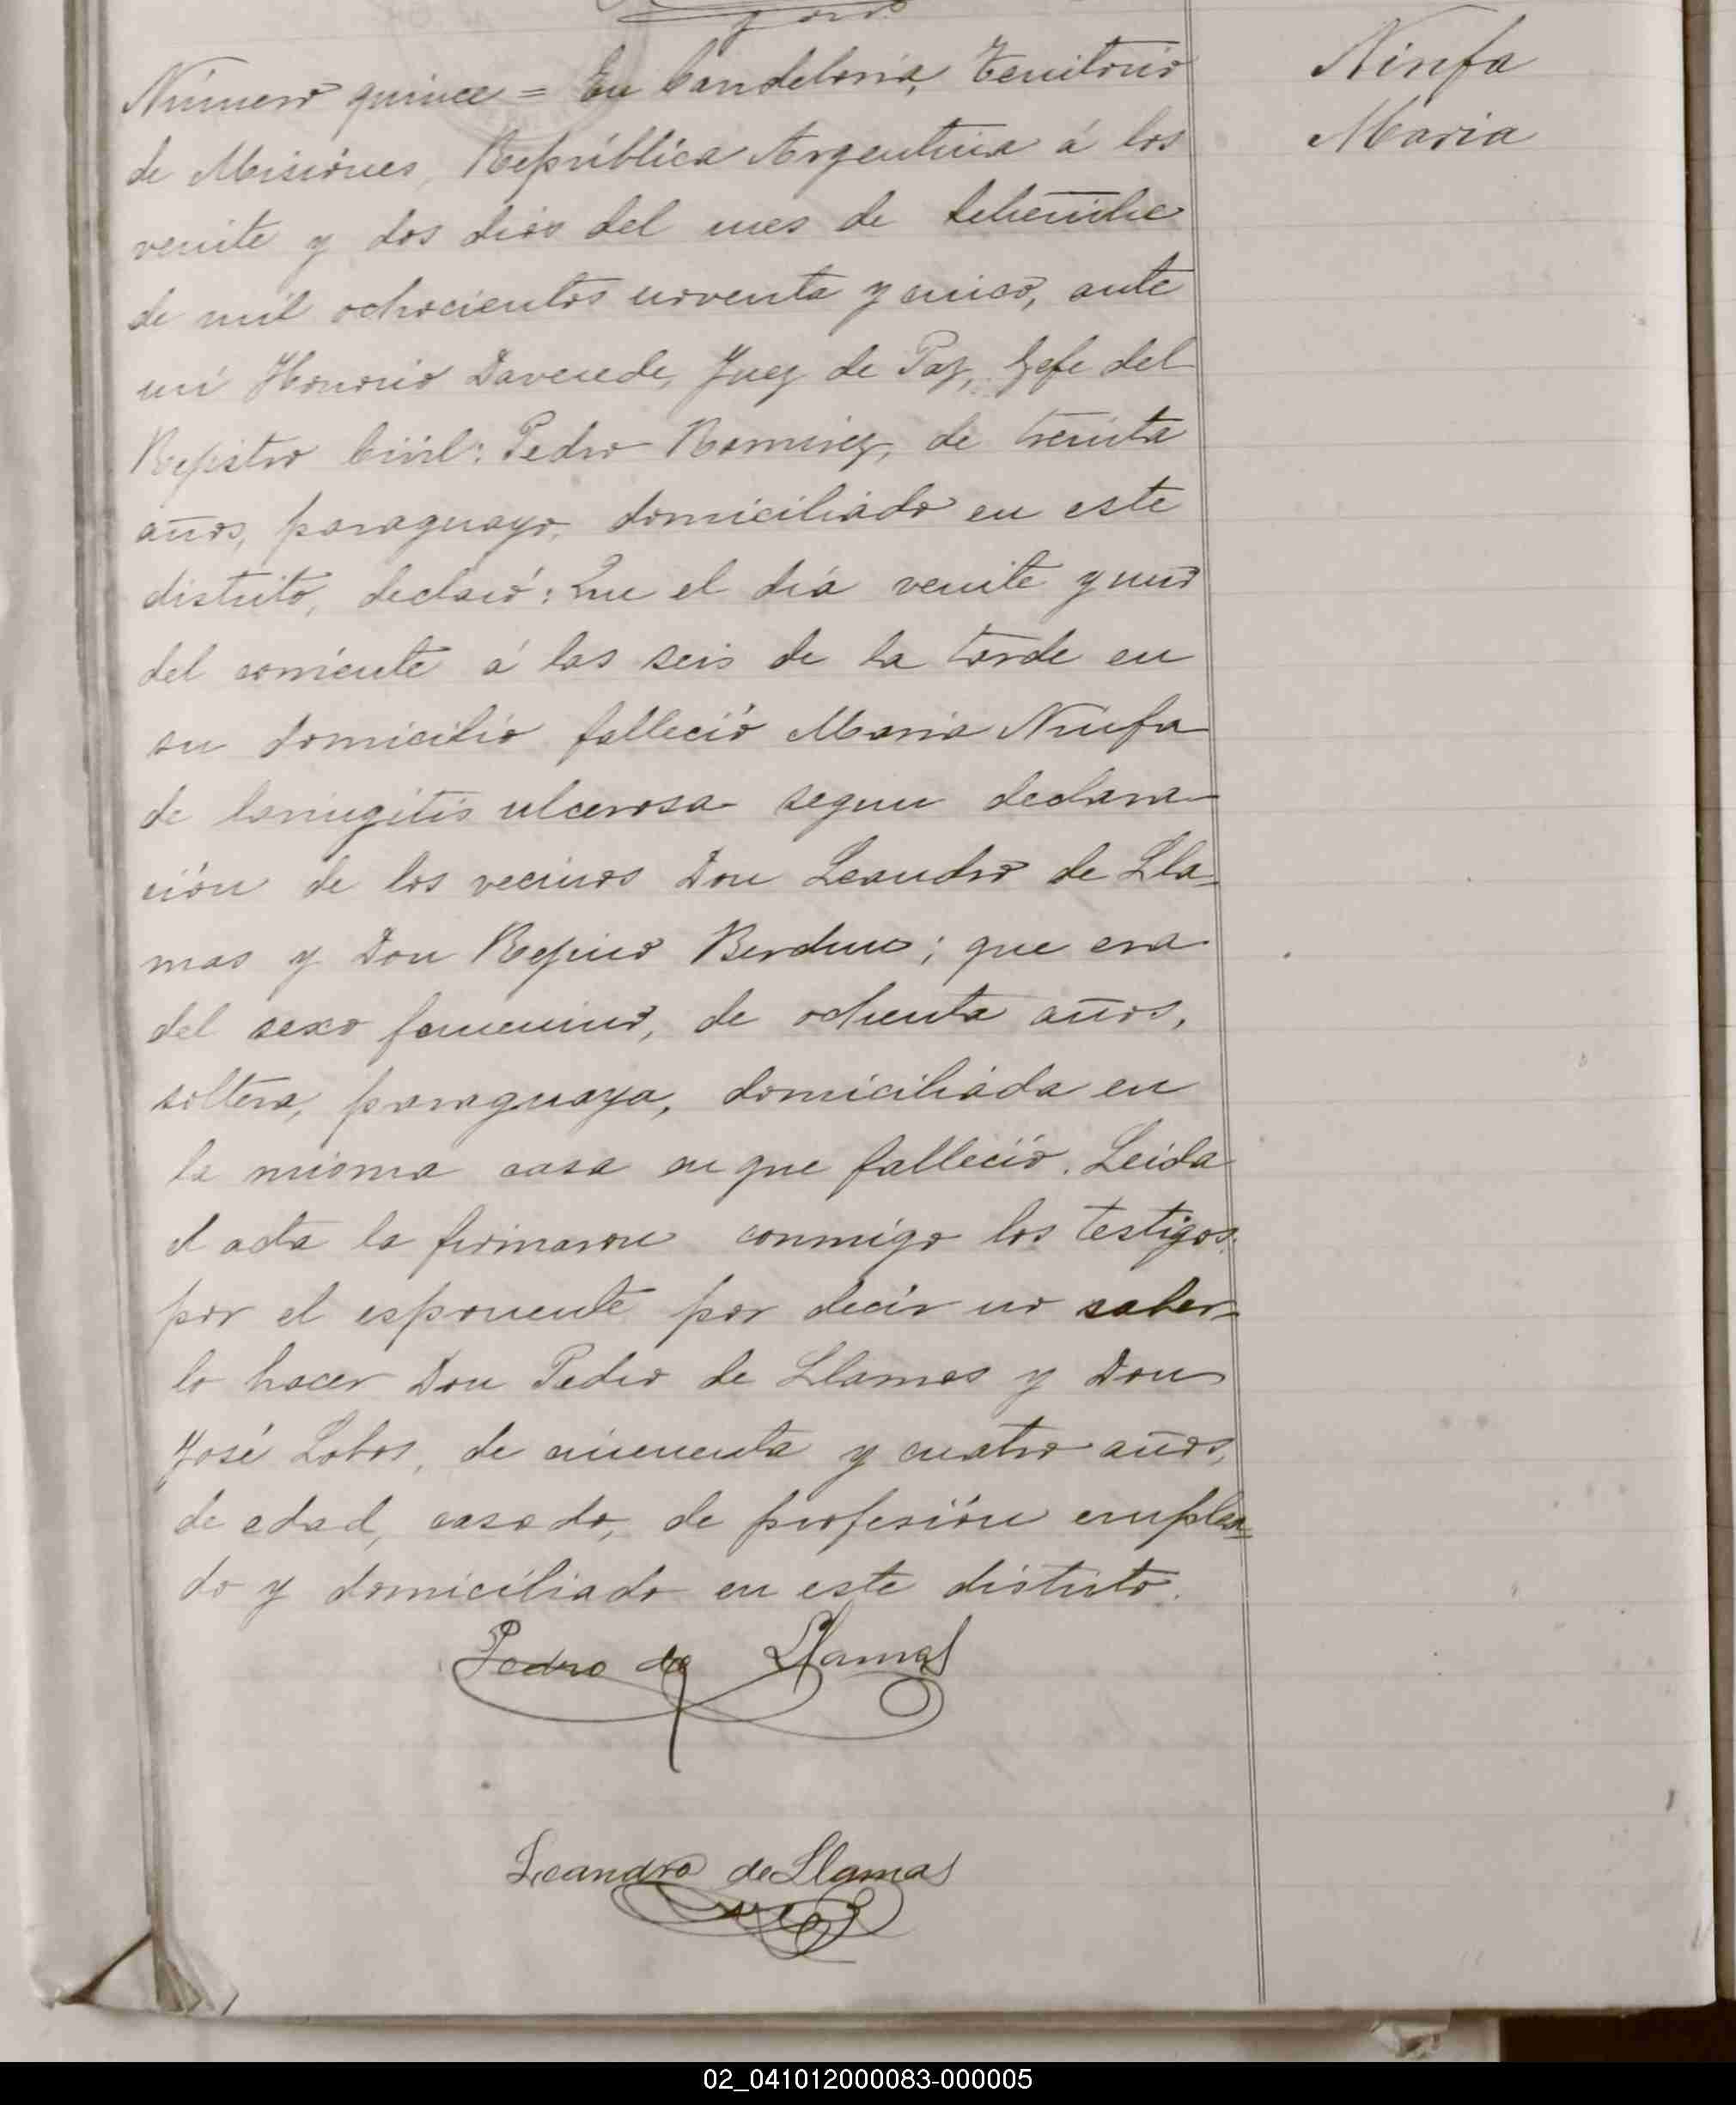 Número quince = En Candelaria, Territorio
de Misiónes, República Argentina á los
veinte y dos dias del mes de Setiembre
de mil ochocientos noventa y cinco, ante
mi Honorio Daverede, Juez de Paz, Gefe del
Registro Civil: Pedro Ramirez, de treinta
años, paraguayo, domiciliado en este
distrito, declaró: Que el dia veinte y uno
del corriente á las seis de la tarde en
su domicilio falleció Maria Ninfa
de laringitis ulcerosa segun declara-
ción de los vecinos Don Leandro de Lla-
mas y Don Regino Berdun; que era
del sexo femenino, de ochenta años,
soltera, paraguaya, domiciliada en
la misma casa en que falleció. Leida
el acta la firmaron conmigo los testigos,
por el esponente por decir no saber-
lo hacer Don Pedro de Llamas y Don
José Lobos, de cincuenta y cuatro años,
de edad, casado, de profesión emplea-
do y domiciliado en este distrito.
Pedro de Llamas
Leandro de Llamas
Ninfa
Maria
02_041012000083-000005